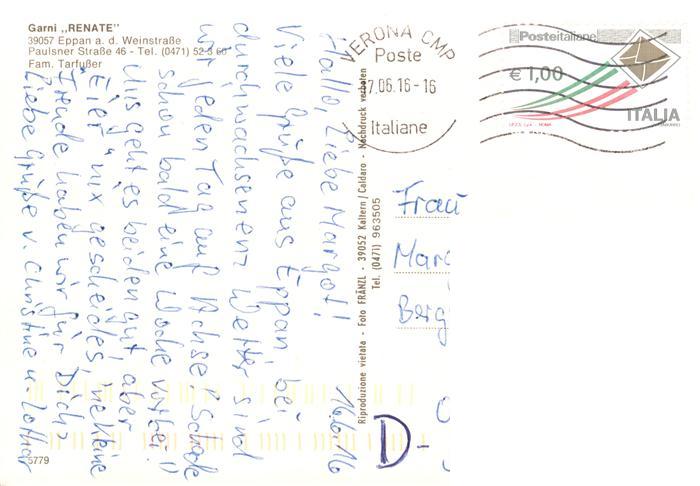 Garni „RENATE"
39057 Eppan a. d. Weinstraße
Paulsner Straße 46 - Tel. (0471) 52 3 60
Fam. Tarfußer
16.6.16
Hallo, liebe Margot!
Viele Grüße aus Eppan bei
durchwachsenem Wetter sind
wir jeden Tag auf Achse. Schade
schon bald eine Woche vorbei
Uns geht es beiden gut aber
nix gescheides! kleine
Freude haben wir für Dich
Liebe Grüße v. Christine u. Lothar
5779
Riproduzione vietata - Foto FRÄNZL - 39052 Kaltern/Caldaro - Nachdruck verboten
Tel. (0471) 963505
VERONA CMP
Poste
7.06.16-16
Italiane
Posteitaliane
€ 1,00
ITALIA
Frau
Marg
Berg
D-